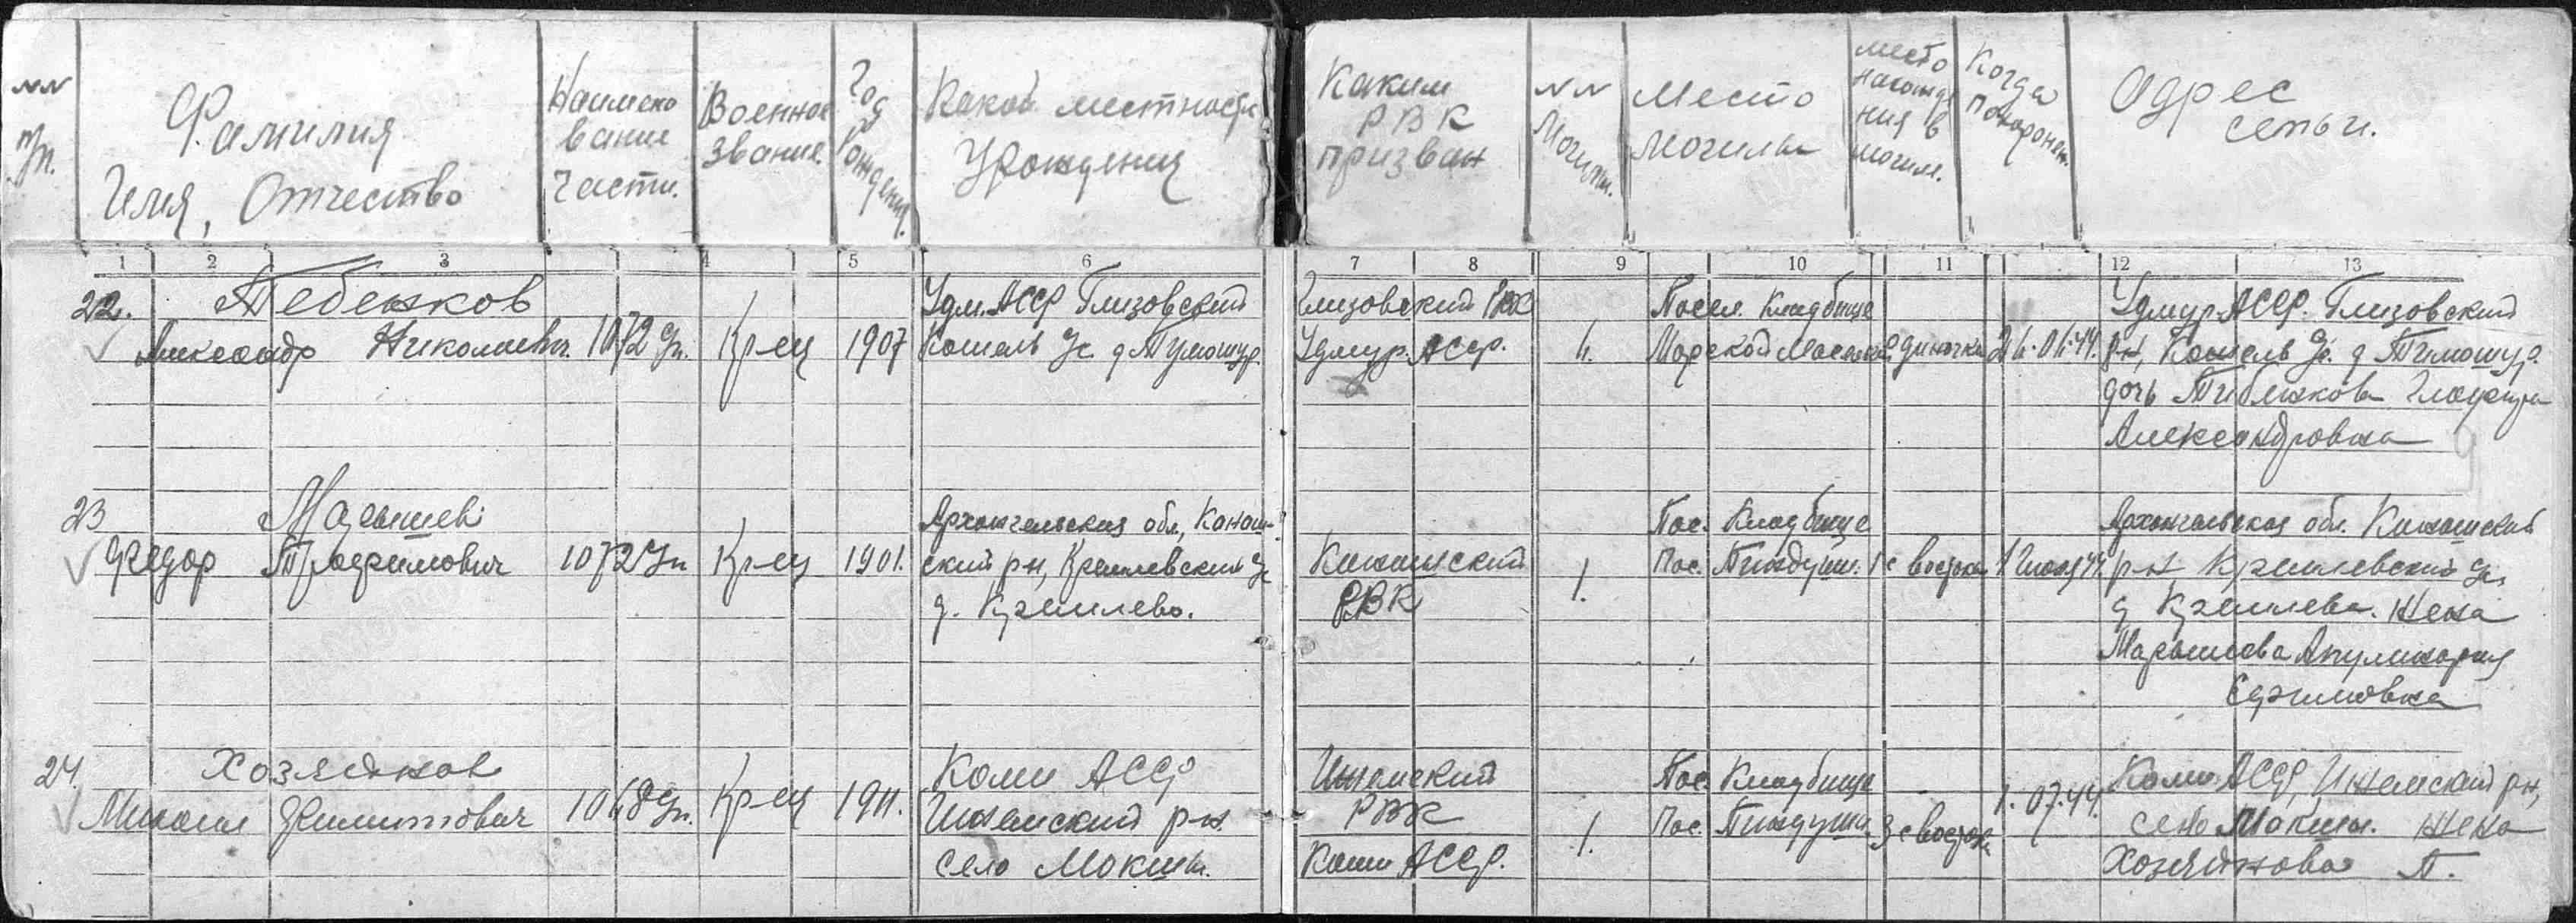 №№ п/п.
Фамилия
Имя, Отчество
Наимено
вание
части.
Военное
звание.
Год
рождения.
Какой местности
Урожденец
Каким
РВК
призван
№№
Могилы.
Место
Могилы
место
нахожде
ния в
могиле.
Когда
похоронен.
Адрес
семьи.
1 2 3 4 5 6 7 8 9 10 11 12 13
22.
Тебеньков
Александр Николаевич
1072 сп.
Кр-ец
1907
Удм. АССР Глизовский
Кошель с/с д.
Глизовский РВК
Удмур. АССР.
4.
Посел. Кладбище
Морской
одиночка
24.06.44.
Удмур. АССР. Глизовский
р-н, Кошель с/с. д
дочь Тибенькова
Александровна
23
Марышев
Федор Трофимович
1072 сп
Кр-ец
1901.
Архангельская обл., Конош-
ский рн, Кремлевский с/с
д.
РВК
1.
Пос. Кладбище
Пос. Пиндуши.
1 с востока
1 июля 44.
Архангельская обл.
р-н с/с
д жена
Марышева
24.
Хозяинов
Михаил
1068 сп.
Кр-ец
1911.
Коми АССР
Ижемский р-н.
село Мокши.
Ижемский
РВК
Коми АССР.
1.
Пос. Кладбище
Пос. Пиндуши.
3 с востока
1.07.44.
Коми АССР, Ижемский рн,
село Мокши. жена
Хозяинова П.